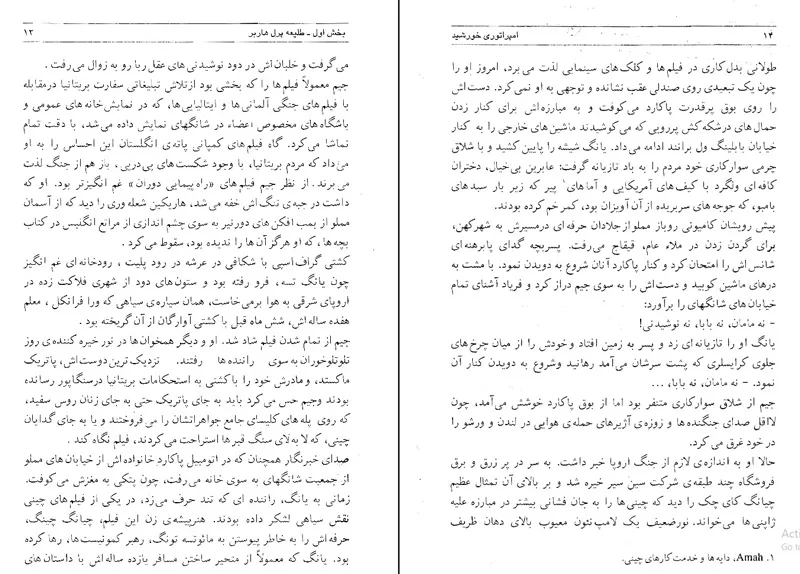 بخش اول ـ طلیعه پرل هاربر ۱۳
می‌گرفت و خلبان‌اش در دود نوشیدنی‌های عقل ربا رو به زوال می‌رفت.
جیم معمولاً فیلم‌ها را که بخشی بود ازتلاش تبلیغاتی سفارت بریتانیا درمقابله
با فیلم‌های جنگی آلمانی‌ها و ایتالیایی‌ها، که در نمایش‌خانه‌های عمومی و
باشگاه‌های مخصوص اعضاء در شانگهای نمایش داده می‌شد، با دقت تمام
تماشا می‌کرد. گاه فیلم‌های کمپانی پاته‌ی انگلستان این احساس را به او
می‌داد که مردم بریتانیا، با وجود شکست‌های پی‌درپی، باز هم از جنگ لذت
می‌برند. از نظر جیم فیلم‌های «راه‌پیمایی دوران» غم انگیزتر بود. او که
داشت در جبه‌ی تنگ‌اش خفه می‌شد، هاریکین شعله وری را دید که از آسمان
مملو از بمب افکن‌های دورنیر به سوی چشم اندازی از مراتع انگلیس در کتاب
بچه‌ها، که او هرگز آن‌ها را ندیده بود، سقوط می‌کرد.
کشتی گراف‌اسپی با شکافی در عرشه در رود پلیت، رودخانه‌ای غم انگیز
چون یانگ تسه، فرو رفته بود و ستون‌های دود از شهری فلاکت زده در
اروپای شرقی به هوا برمی‌خاست، همان سیاره‌ی سیاهی که ورا فرانکل، معلم
هفده ساله‌اش، شش ماه قبل با کشتی آوارگان از آن گریخته بود.
جیم از تمام شدن فیلم شاد شد. او و دیگر همخوان‌ها در نور خیره کننده‌ی روز
تلوتلوخوران به سوی راننده‌ها رفتند. نزدیک ترین دوست‌اش، پاتریک
ماکستد، ومادرش خود را با کشتی به استحکامات بریتانیا درسنگاپور رسانده
بودند وجیم حس می‌کرد باید به جای پاتریک حتی به جای زنان روس سفید،
که روی پله‌های کلیسای جامع جواهراتشان را می‌فروختند و یا به جای گدایان
چینی، که لابه‌لای سنگ قبرها استراحت می‌کردند، فیلم نگاه کند.
صدای خبرنگار همچنان که در اتومبیل پاکارد خانواده‌اش از خیابان‌های مملو
از جمعیت شانگهای به سوی خانه می‌رفت، چون پتکی به مغزش می‌کوفت.
زمانی به یانگ، راننده‌ای که تند حرف می‌زد، در یکی از فیلم‌های چینی
نقش سیاهی لشکر داده بودند. هنرپیشه‌ی زن این فیلم، چیانگ چینگ،
حرفه‌اش را به خاطر پیوستن به مائوتسه تونگ، رهبر کمونیست‌ها، رها کرده
بود. یانگ که معمولاً از متحیر ساختن مسافر یازده ساله‌اش با داستان‌های
۱۴ امپراتوری خورشید
طولانی بدل‌کاری در فیلم‌ها و کلک‌های سینمایی لذت می‌برد، امروز او را
چون یک تبعیدی روی صندلی عقب نشانده و توجهی به او نمی‌کرد. دست‌اش
را روی بوق پرقدرت پاکارد می‌کوفت و به مبارزه‌اش برای کنار زدن
حمال‌های درشکه‌کش پررویی که می‌کوشیدند ماشین‌های خارجی را به کنار
خیابان بابلینگ ول برانند ادامه می‌داد. یانگ شیشه را پایین کشید و با شلاق
چرمی سوارکاری خود مردم را به باد تازیانه گرفت: عابرین بی‌خیال، دختران
کافه‌ای ولگرد با کیف‌های آمریکایی و آماهای ¹ پیر که زیر بار سبدهای
بامبو، که جوجه‌های سربریده از آن آویزان بود، کمر خم کرده بودند.
پیش رویشان کامیونی روباز مملو از جلادان حرفه‌ای درمسیرش به شهرکهن،
برای گردن زدن در ملاء عام، قیقاج می‌رفت. پسربچه گدای پابرهنه‌ای
شانس‌اش را امتحان کرد و کنار پاکارد آنان شروع به دویدن نمود. با مشت به
درهای ماشین کوبید و دست‌اش را به سوی جیم دراز کرد و فریاد آشنای تمام
خیابان‌های شانگهای را برآورد:
- نه مامان، نه بابا، نه نوشیدنی!
یانگ او را تازیانه‌ای زد و پسر به زمین افتاد وخودش را از میان چرخ‌های
جلوی کرایسلری که پشت سرشان می‌آمد رهانید وشروع به دویدن کنار آن
نمود. - نه مامان، نه بابا، ...
جیم از شلاق سوارکاری متنفر بود اما از بوق پاکارد خوشش می‌آمد، چون
لااقل صدای جنگنده‌ها و زوزه‌ی آژیرهای حمله‌ی هوایی در لندن و ورشو را
در خود غرق می‌کرد.
حالا او به اندازه‌ی لازم از جنگ اروپا خبر داشت. به سر در پر زرق و برق
فروشگاه چند طبقه‌ی شرکت سین سیر خیره شد و بر بالای آن تمثال عظیم
چیانگ کای چک را دید که چینی‌ها را به جان فشانی بیشتر در مبارزه علیه
ژاپنی‌ها می‌خواند. نورضعیف یک لامپ‌نئون معیوب بالای دهان ظریف
۱. Amah، دایه‌ها و خدمت‌کارهای چینی.